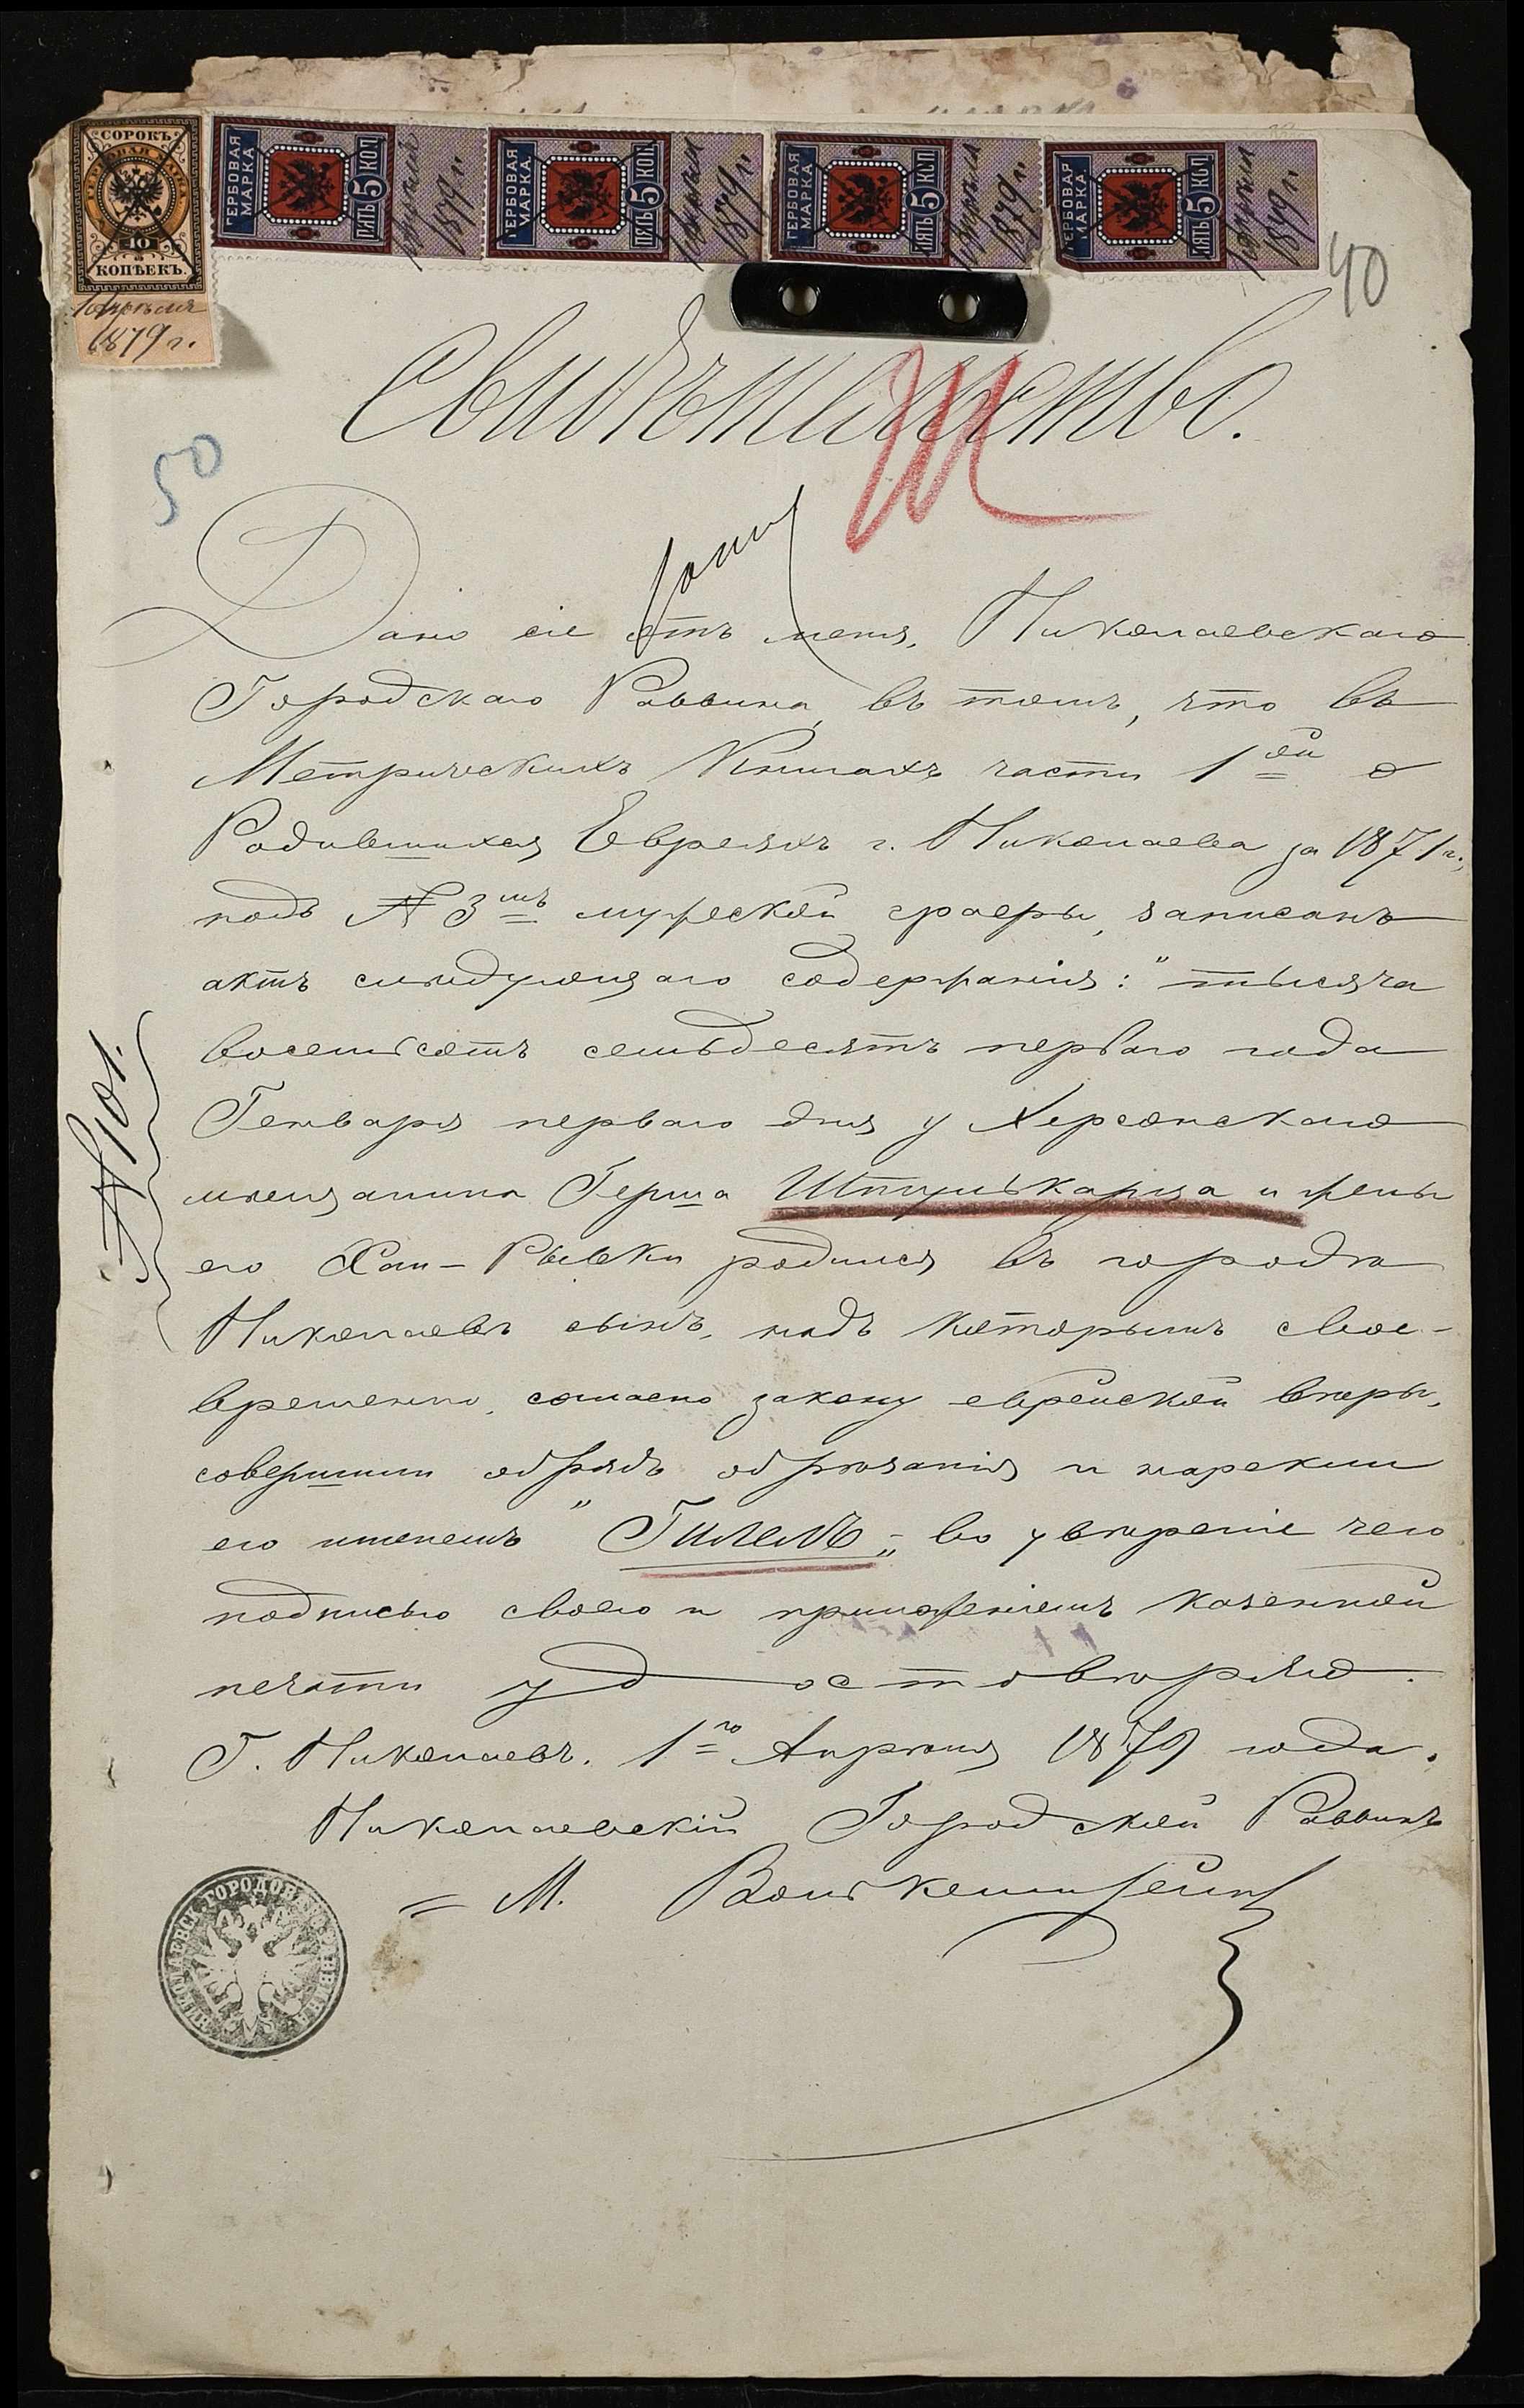 СОРОКЪ
ГЕРБОВАЯ МАРКА
40
КОПѢЕКЪ.
1 Апрѣля
1879 г.
ГЕРБОВАЯ МАРКА ПЯТЬ 5 КОП.
1 Апрѣля 1879 г.
ГЕРБОВАЯ МАРКА ПЯТЬ 5 КОП.
1 Апрѣля 1879 г.
ГЕРБОВАЯ МАРКА ПЯТЬ 5 КОП.
1 Апрѣля 1879 г.
ГЕРБОВАЯ МАРКА ПЯТЬ 5 КОП.
1 Апрѣля 1879 г.
40
Свидѣтельство.
50
Дано сіе отъ меня, Николаевскаго
Городскаго Раввина, въ томъ, что въ
Метрическихъ Книгахъ части 1ой о
Родившихся Евреяхъ г. Николаева за 1871 г.,
подъ № 3мъ мужеской графы, записанъ
актъ слѣдующаго содержанія: "тысяча
восемьсотъ семьдесятъ перваго года
Генваря перваго дня у Херсонскаго
мѣщанина Герша Шпулькарца и жены
его Хаи-Рывки родился въ городѣ
Николаевѣ сынъ, надъ которымъ свое-
временно, согласно закону еврейской вѣры,
совершили обрядъ обрѣзанія и нарекли
его именемъ "Гилель„ во увѣреніе чего
подписью своею и приложеніемъ казенной
печати удостовѣряю.
Г. Николаевъ. 1го Апрѣля 1879 года.
Николаевскій Городской Раввинъ
М.
№ 101.
НИКОЛАЕВСК. ГОРОДОВА РАВВИНА